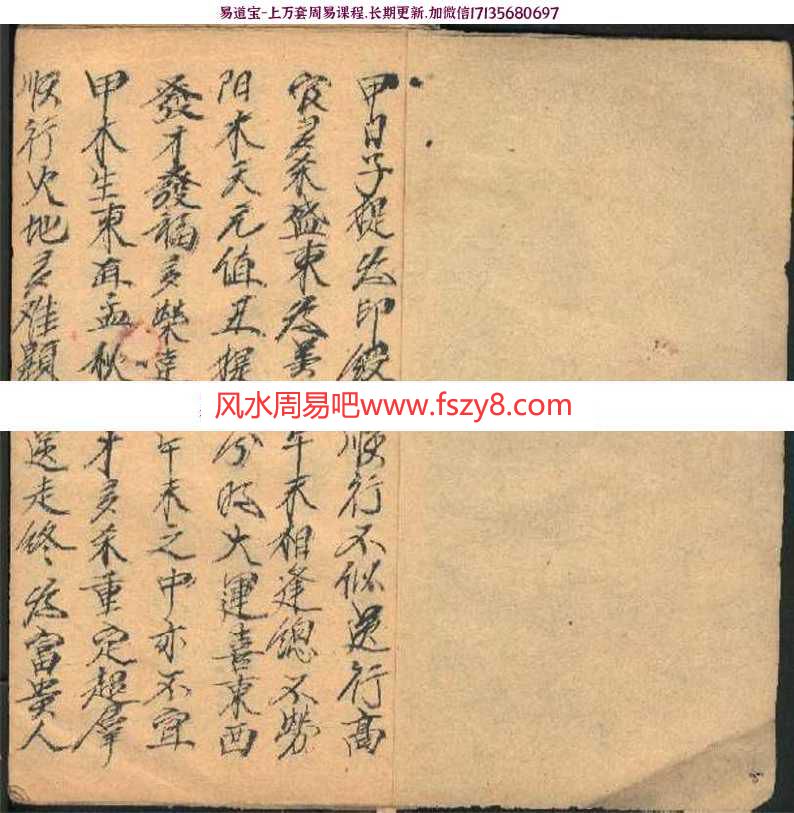 易道宝-上万套周易课程,长期更新,加微信17135680697
甲日子提为印綬順行不似逆行高
官星杀盛東为美午未相逢總不劳
阳木天元值丑提分火運喜東西
發才發福多榮達午未之中亦不宜
甲木生東孟秋才多杀重定超羣
順行火地多难顕逆走终为富贵人
风水周易吧www.fszy8.com